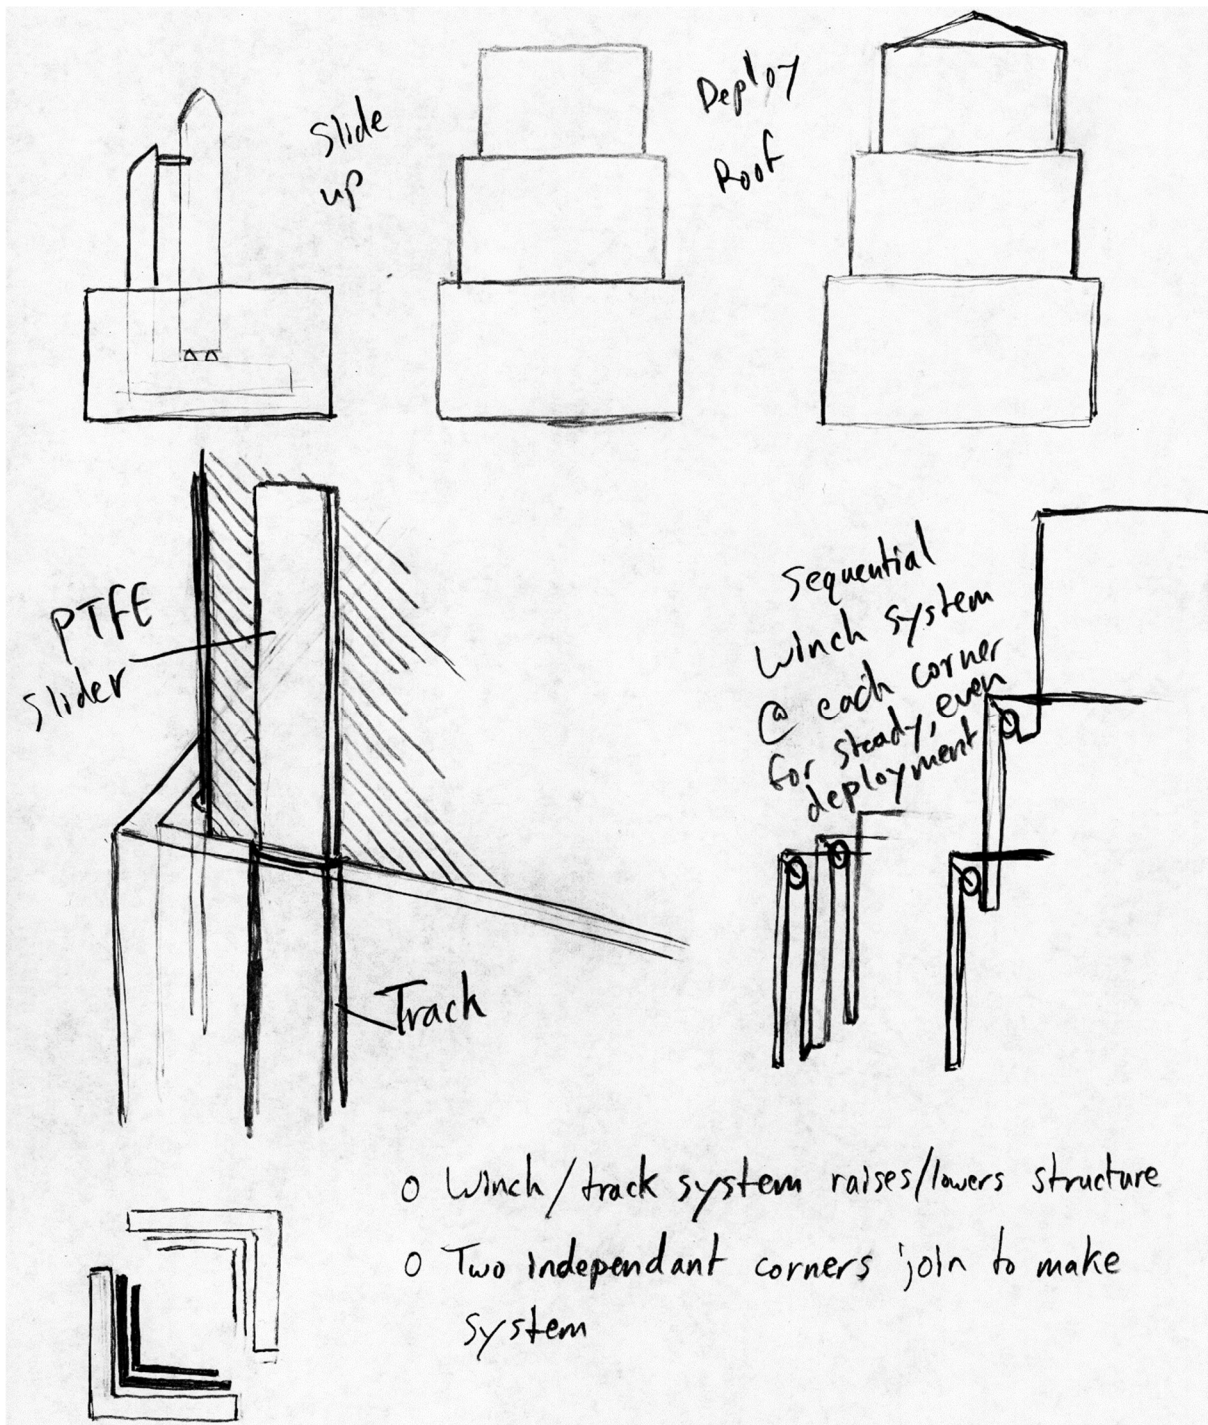 Slide
up
Deploy
Roof
PTFE
slider
Sequential
Winch system
@ each corner
for steady, even
deployment
Track
o Winch/track system raises/lowers structure
o Two independant corners join to make
system